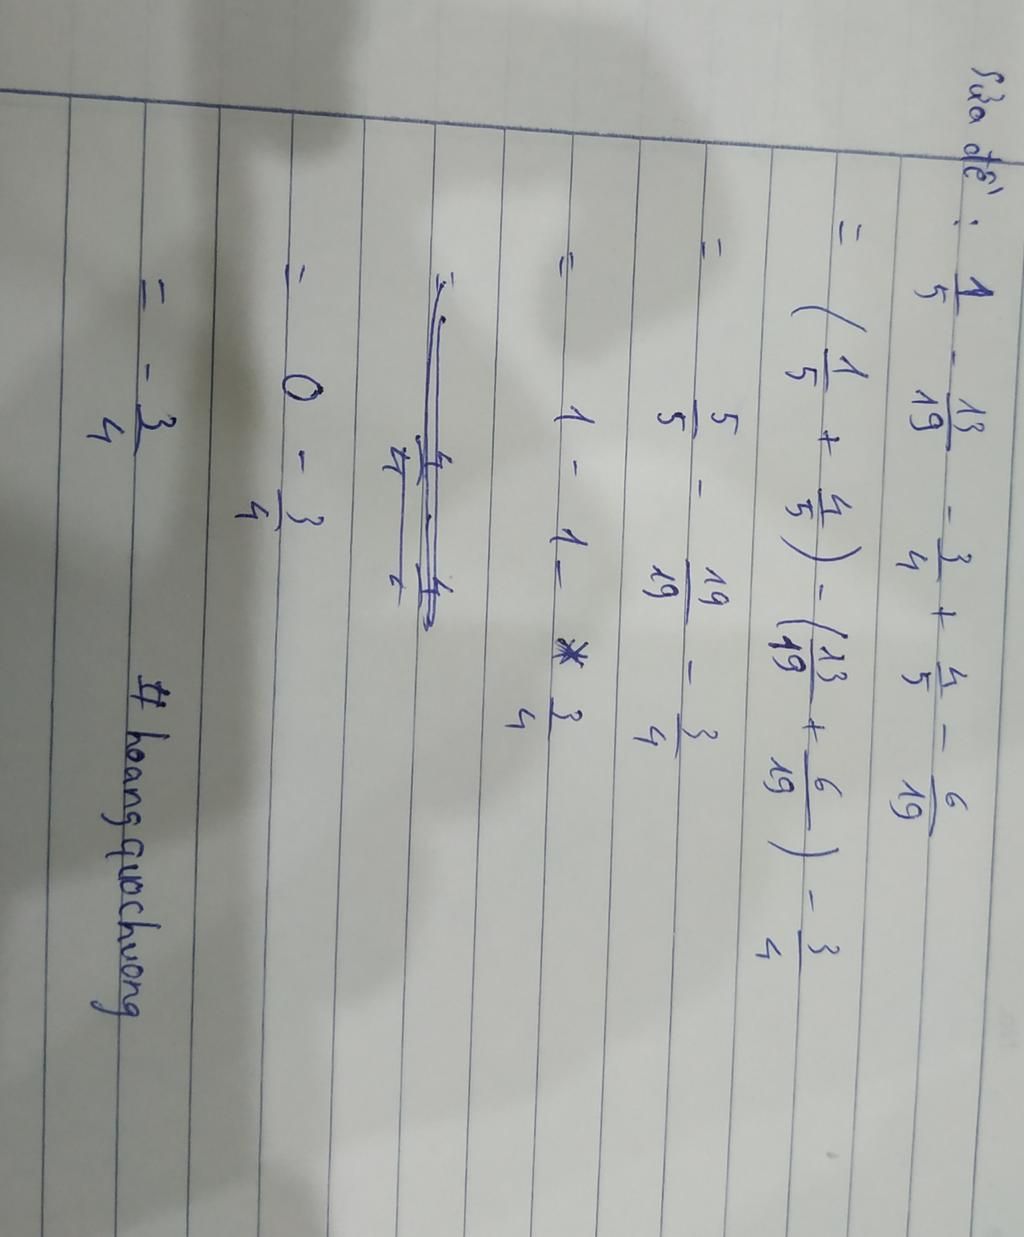 Sửa đề: 1/5 - 13/19 - 3/4 + 4/5 - 6/19
= (1/5 + 4/5) - (13/19 + 6/19) - 3/4
= 5/5 - 19/19 - 3/4
= 1 - 1 - 3/4
= 0 - 3/4
= - 3/4
# hoangquochuong